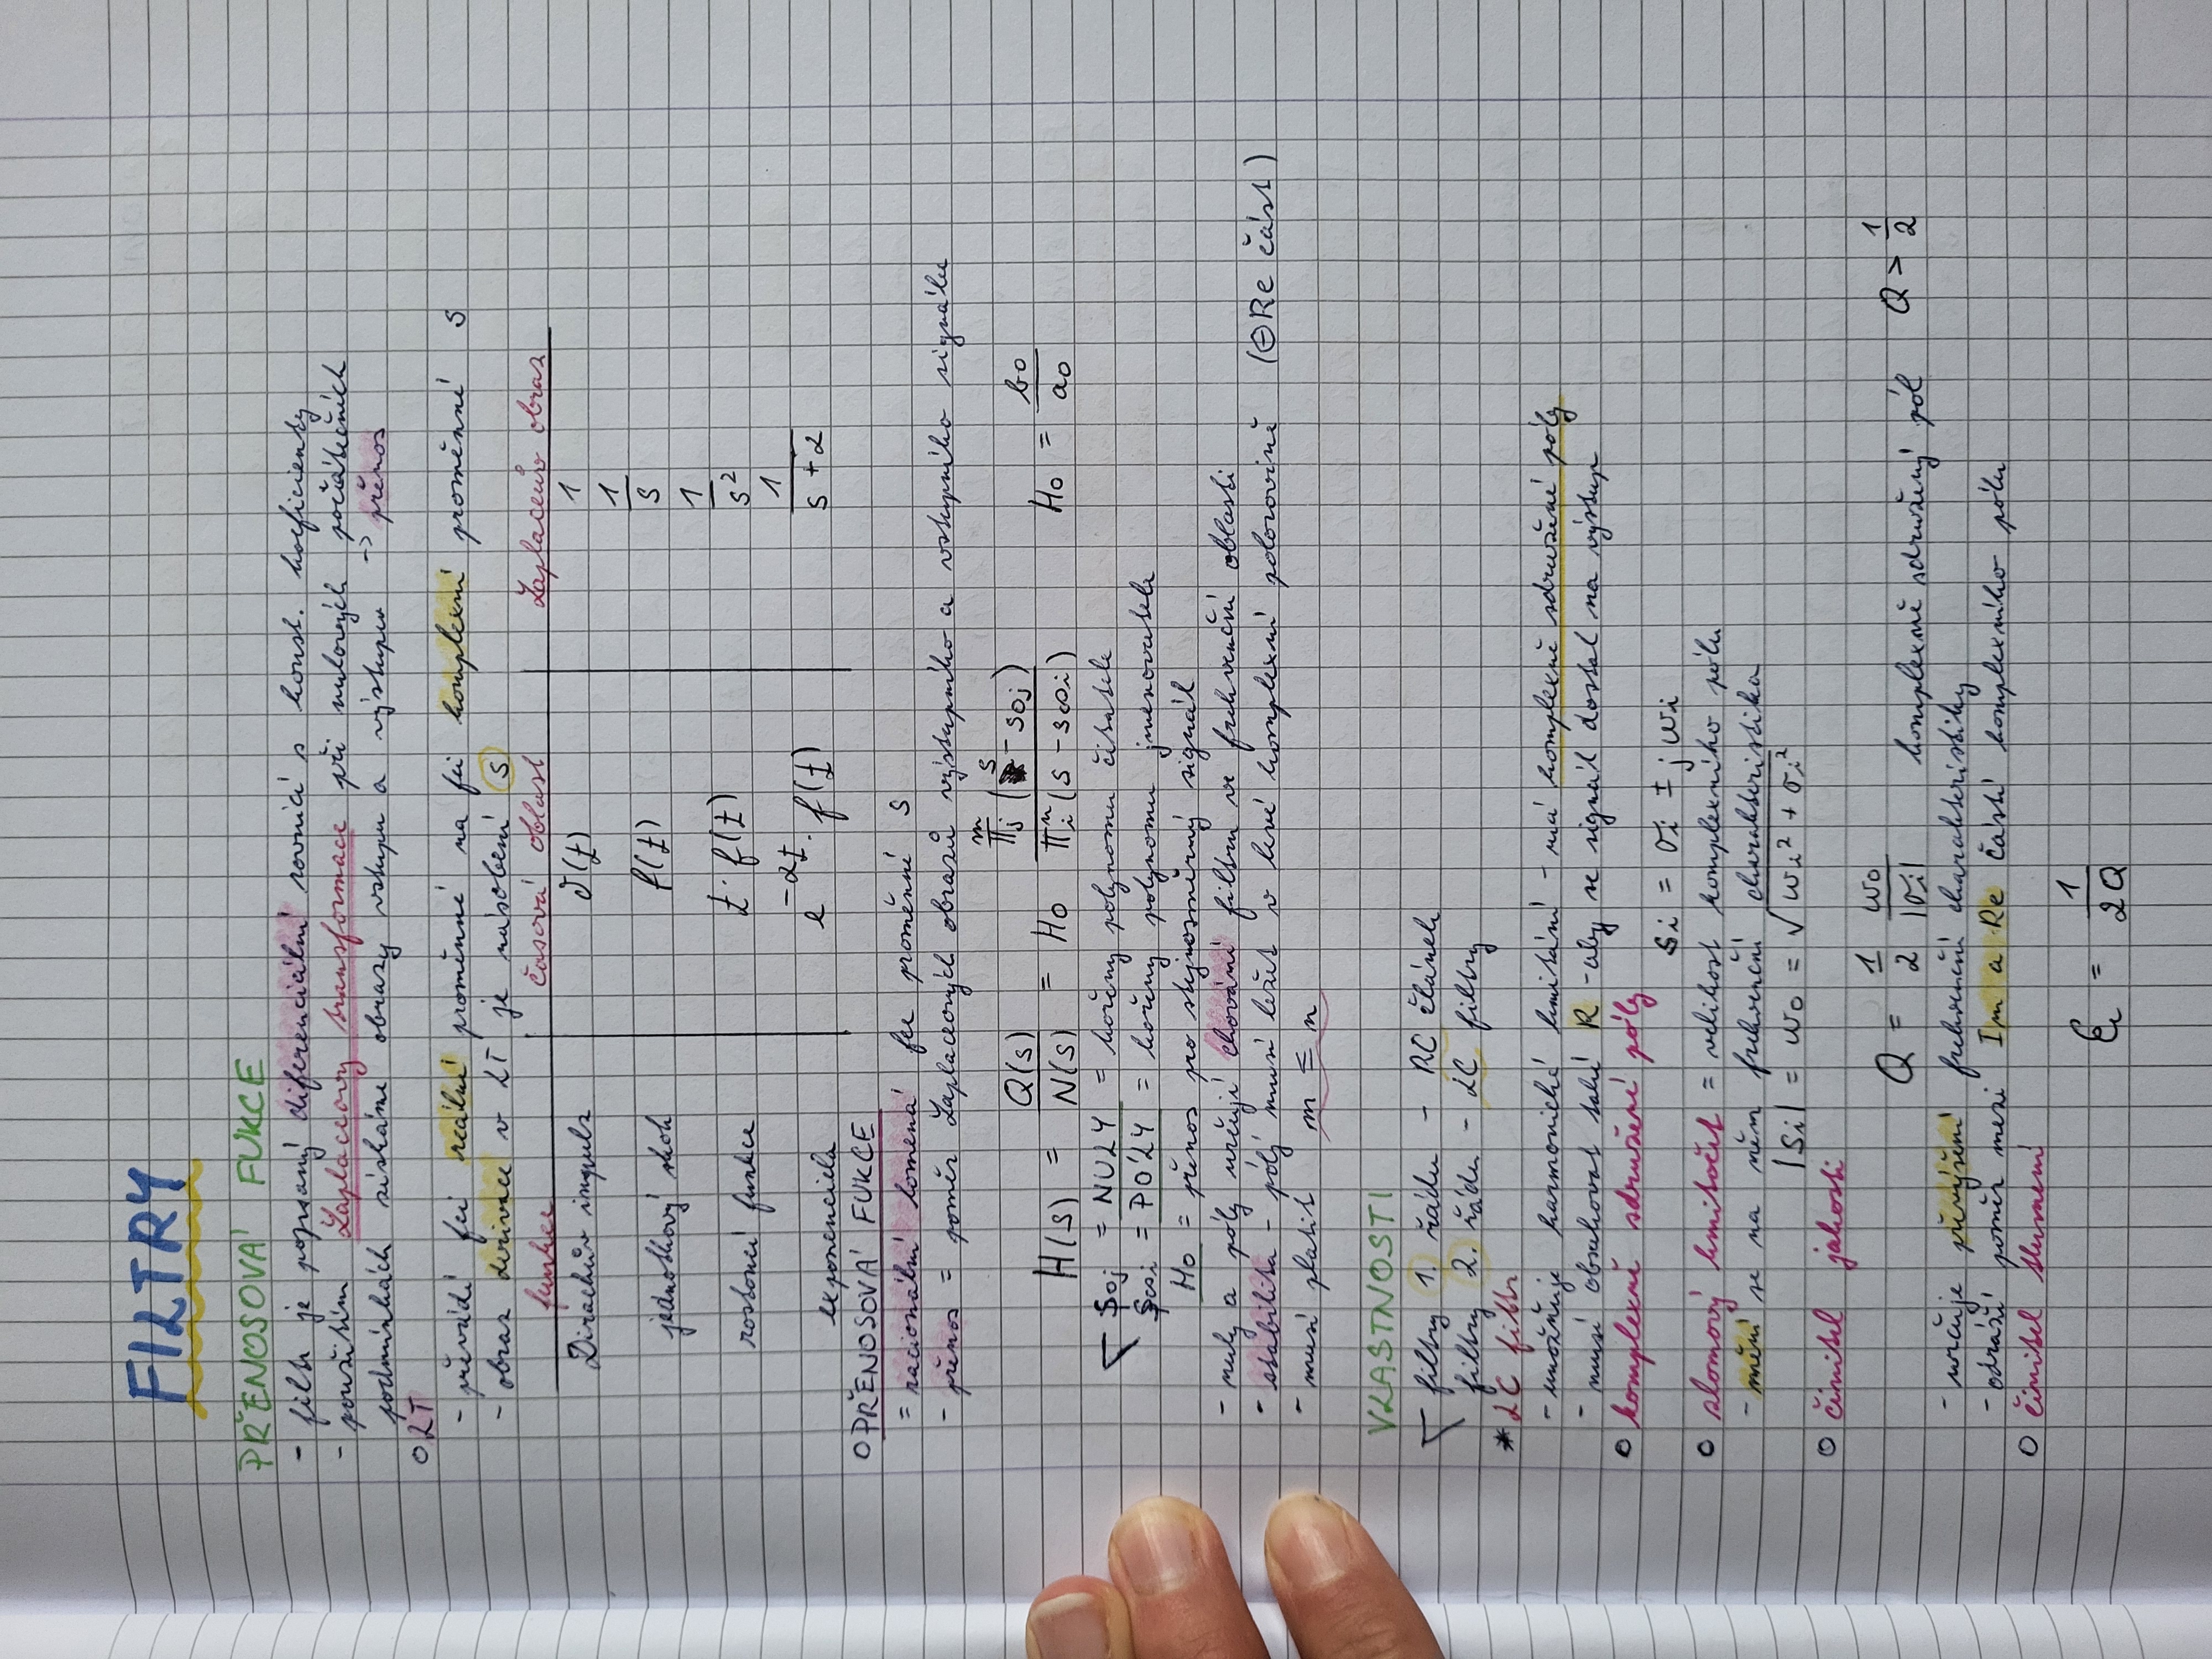 FILTRY
PŘENOSOVÁ FUKCE
- filtr je popsaný diferenciální rovnicí s konst. koeficienty
- použitím Laplaceovy transformace při nulových počátečních
podmínkách získáme obrazy vstupu a výstupu -> přenos
○ LT
- převádí fci reálné proměnné na fci komplexní proměnné s
- obraz derivace v LT je násobení s
funkce časová oblast Laplaceův obraz
Dirackův impulz δ(t) 1
jednotkový skok f(t) 1/s
rostoucí funkce t · f(t) 1/s²
exponenciela e^(-αt) · f(t) 1/(s + α)
○ PŘENOSOVÁ FUKCE
= racionální lomená fce proměnné s
- přenos = poměr Laplaceových obrazů výstupního a vstupního signálu
H(s) = Q(s)/N(s) = H0 Π_j^m (s - s0j) / Π_i^n (s - s∞i) H0 = b0/a0
s0j = NULY = kořeny polynomu čitatele
s∞i = PÓLY = kořeny polynomu jmenovatele
H0 = přenos pro stejnosměrný signál
- nuly a póly určují chování filtru ve frekvenční oblasti
- stabilita - póly musí ležet v levé komplexní polorovině (⊖Re část)
- musí platit m ≤ n
VLASTNOSTI
filtry 1. řádu - RC článek
filtry 2. řádu - LC filtry
* LC filtr
- umožňuje harmonické kmitání - má komplexně sdružené póly
- musí obsahovat také R - aby se signál dostal na výstup
○ komplexně sdružené póly
si = σi ± jωi
○ slomový kmitočet = velikost komplexního pólu
- mění se na něm frekvenční charakteristika
|si| = ω0 = √(ωi² + σi²)
○ činitel jakosti
Q = 1/2 ω0/|σi| komplexně sdružený pól Q > 1/2
- určuje převýšení frekvenční charakteristiky
- odráží poměr mezi Im a Re částí komplexního pólu
○ činitel tlumení
ξi = 1/2Q